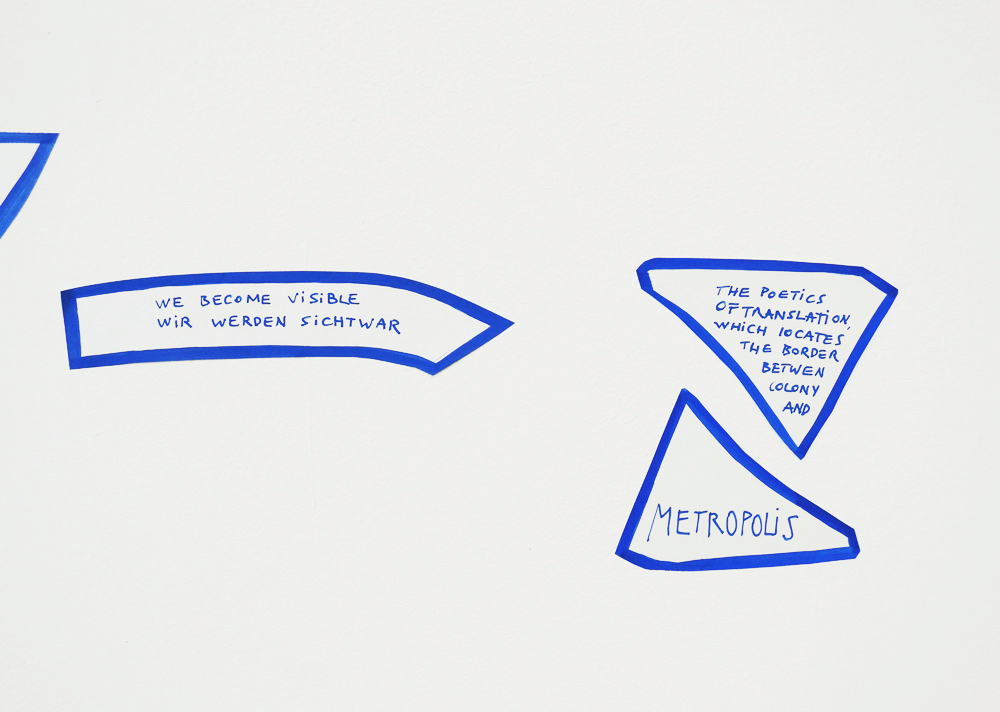 WE BECOME VISIBLE
WIR WERDEN SICHTWAR
THE POETICS
OF TRANSLATION,
WHICH LOCATES
THE BORDER
BETWEN
COLONY
AND
METROPOLIS